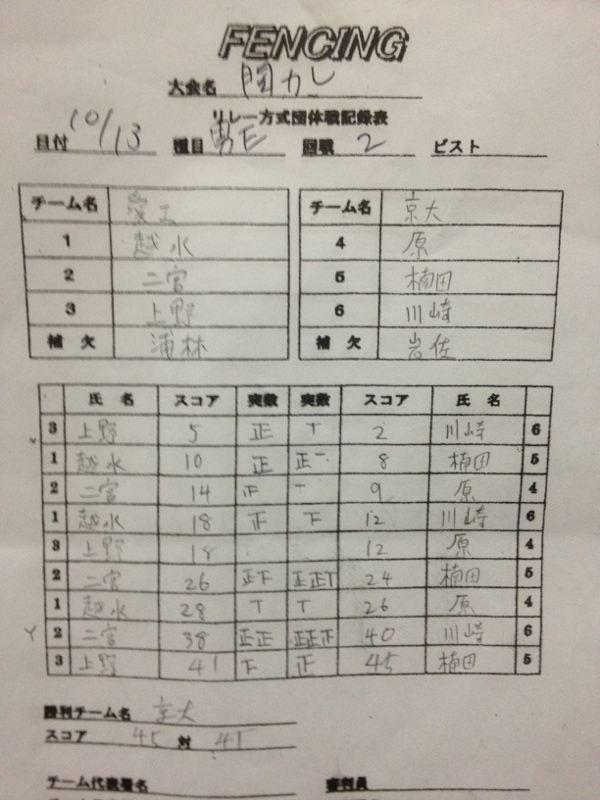 FENCING
大会名 関カレ
リレー方式団体戦記録表
日付 10/13 種目 男E 回戦 2 ピスト
チーム名 愛工 チーム名 京大
1 越水 4 原
2 二宮 5 楠田
3 上野 6 川崎
補欠 浦林 補欠 岩佐
氏名 スコア 実数 実数 スコア 氏名
3 上野 5 正 T 2 川崎 6
1 越水 10 正 正一 8 楠田 5
2 二宮 14 一 9 原 4
1 越水 18 下 12 川崎 6
3 上野 18 12 原 4
2 二宮 26 正下 正正T 24 楠田 5
1 越水 28 T T 26 原 4
2 二宮 38 正正 正正正 40 川崎 6
3 上野 41 下 正 45 楠田 5
勝利チーム名 京大
スコア 45 対 41
チーム代表署名 審判員